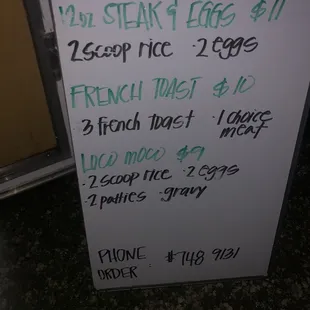 12oz STEAK & EGGS $11
2 scoop rice · 2 eggs
FRENCH TOAST $10
3 french toast · 1 choice
meat
LOCO MOCO $9
· 2 scoop rice · 2 eggs
· 2 patties · gravy
PHONE
ORDER · #748 9131